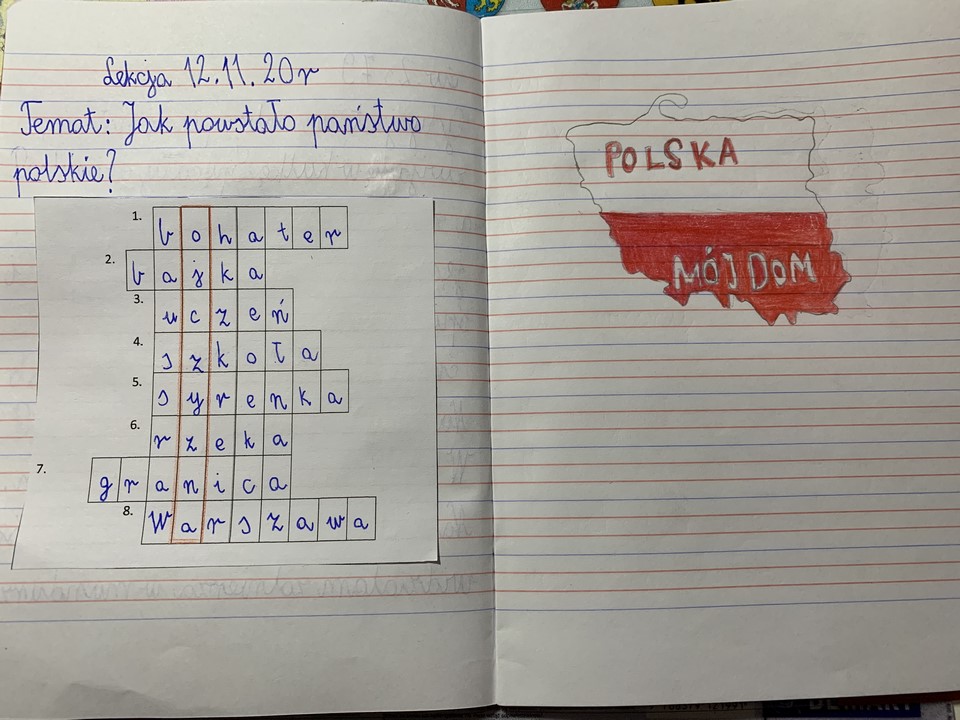 Lekcja 12.11.20r
Temat: Jak powstało państwo
polskie?
1. bohater
2. bajka
3. uczeń
4. szkoła
5. syrenka
6. rzeka
7. granica
8. Warszawa
POLSKA
MÓJ DOM